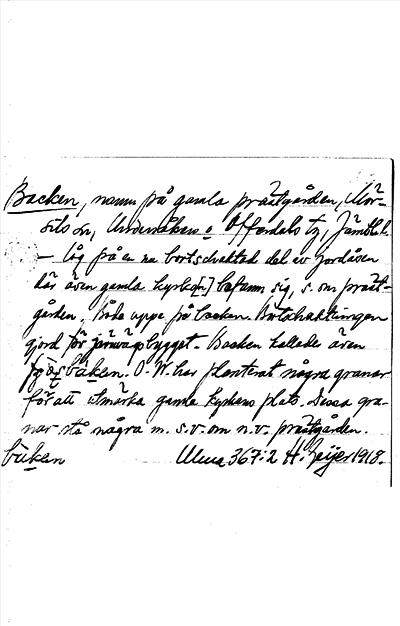 Backen, namn på gamla prästgården, Mör-
sils sn, Undersåkers o. Offerdals tg, Jämtl.
– låg på en nu bortschaktad del av jordåsen
där även gamla kyrk[n] befann sig, s. om präst-
gården. Både uppe på backen. Bortschaktningen
gjord för järnvägsbygget. Backen kallades även
båken. O. W. har planterat några granar
för att utmärka gamla kyrkans plats. Dessa gra-
nar stå några m. s.v. om n.v. prästgården.
båken Ulma 367:2 H. Geijer 1918.